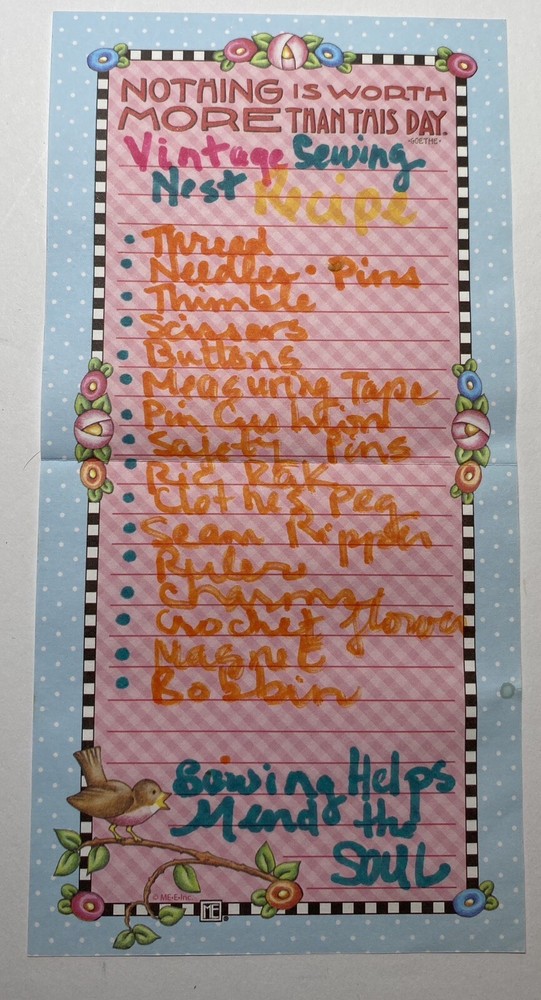 NOTHING IS WORTH
MORE THAN THIS DAY.
•GOETHE•
Vintage Sewing
Nest Recipe
• Thread
• Needles • Pins
• Thimble
• Scissors
• Buttons
• Measuring Tape
• Pin Cushion
• Safety Pins
• Ric Rak
• Clothes Peg
• Seam Ripper
• Ruler
• Charms
• Crochet flower
• Magnet
• Bobbin
Sewing Helps
Mend the
SOUL
© M.E.-E-Inc.
ME